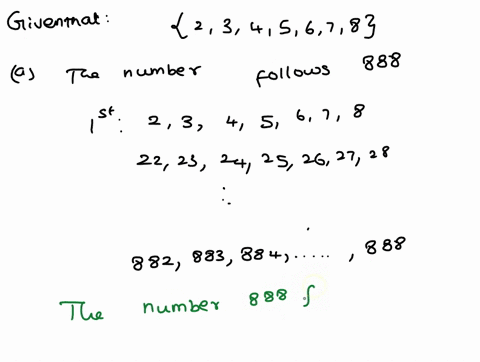 Giventhat: {2, 3, 4, 5, 6, 7, 8}
(a) The number follows 888
1st: 2, 3, 4, 5, 6, 7, 8
22, 23, 24, 25, 26, 27, 28
⋮
882, 883, 884, ....., 888
The number 888 f